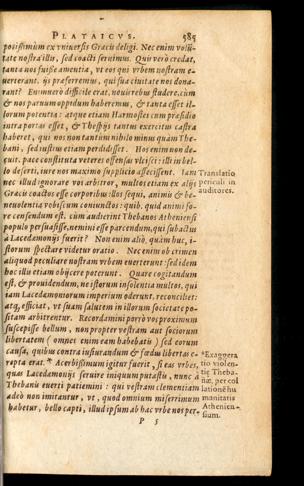 PLATAICVS. 585
potissimum ex vniuersis Græcis deligi. Nec enim volũ-
tate nostra illis, sed coacti seruimus. Quis verò credat,
tanta nos fuisse amentia, vt eos qui vrbem nostram e-
uerterant. ijs præferremus, qui sua ciuitate nos dona-
rant? Enimuero difficile erat, nouis rebus studere, cùm
& nos parum oppidum haberemus, & tanta esset il-
lorum potentia: atque etiam Harmostes cum præsidio
intra portas esset, & Thespijs tantus exercitus castra
haberet, qui nos non tantùm nihilo minus quàm The-
bani, sed iustius etiam perdidisset. Hos enim non de-
quit. pace constituta veteres offensas vlcisci: illi in bel-
lo deserti, iure nos maximo supplicio affecissent. Iam
nec illud ignorare vos arbitror, multos etiam ex alijs
Græcis coactos esse corporibus illos sequi, animis & be-
neuolentia vobiscum coniunctos: quib. quid animi fo-
re censendum est. cùm audierint Thebanos Atheniensi
populo persuasisse, nemini esse parcendum, qui subactus
à Lacedæmonijs fuerit? Non enim aliò, quàm huc, i-
storum spectare videtur oratio. Nec enim ob crimen
aliquod peculiare nostram vrbem euerterunt: sed idem
hoc illis etiam obijcere poterunt. Quare cogitandum
est, & prouidendum, ne istorum insolentia multos, qui
iam Lacedæmoniorum imperium oderunt, reconciliet:
atq, efficiat, vt suam salutem in illorum societate po-
sitam arbitrentur. Recordamini porrò vos proximum
suscepisse bellum, non propter vestram aut sociorum
libertatem (omnes enim eam habebatis) sed eorum
causa, quibus contra iusiurandum & fœdus libertas e-
repta erat. * Acerbissimum igitur fuerit, si eas vrbes,
quas Lacedæmonijs seruire iniquum putastis, nunc à
Thebanis euerti patiemini: qui vestram clementiam
adeò non imitantur, vt, quod omnium miserrimum
habetur, bello capti, illud ipsum ab hac vrbe nos per-
P 5
Translatio
periculi in
auditores.
*Exaggera
tio violen-
tiæ Theba-
næ, per col
lationẽ hu
manitatis
Athenien-
sium.